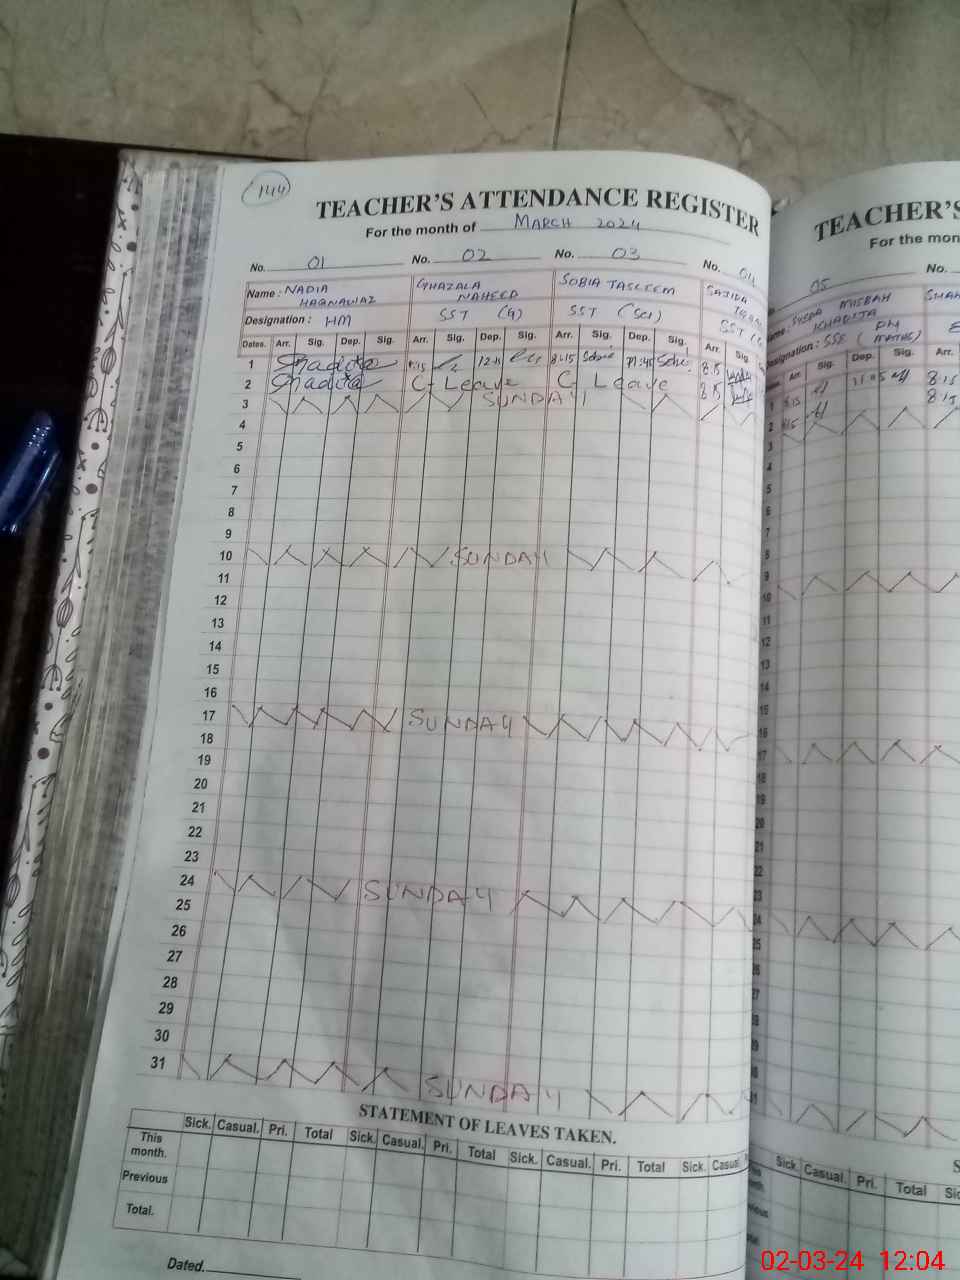 144
TEACHER'S ATTENDANCE REGISTER
For the month of MARCH 2024
No. 01 No. 02 No. 03 No. 04
Name: NADIA HAQNAWAZ GHAZALA NAHEED SOBIA TASLEEM SAJIDA
Designation: HM SST (G) SST (Sci) SST
Dates. Arr. Sig. Dep. Sig. Arr. Sig. Dep. Sig. Arr. Sig. Dep. Sig. Arr. Sig.
1 8:15 12:15 8:15 11:45 8:15
2 C Leave C Leave 8:15
3 SUNDAY
4
5
6
7
8
9
10 SUNDAY
11
12
13
14
15
16
17 SUNDAY
18
19
20
21
22
23
24 SUNDAY
25
26
27
28
29
30
31 SUNDAY
STATEMENT OF LEAVES TAKEN.
Sick. Casual. Pri. Total Sick. Casual. Pri. Total Sick. Casual. Pri. Total Sick. Casual
This month.
Previous
Total.
Dated.
TEACHER'S
For the mon
05 No.
MISBAH KHADIJA
Designation: SSE ( MATHS)
Arr. Sig. Dep. Sig. Arr.
1 8:15 11:05 8:15
2 8:15 8:15
3
4
5
6
7
8
9
10
11
12
13
14
15
16
17
18
19
20
21
22
23
24
25
26
27
28
29
30
31
Sick. Casual. Pri. Total Sic
02-03-24 12:04